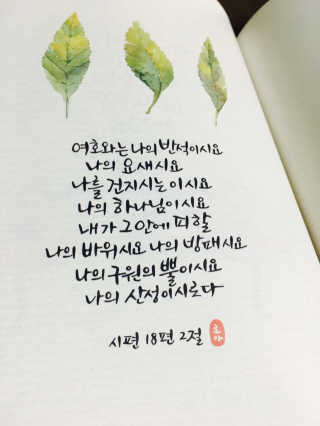 여호와는 나의 반석이시요
나의 요새시요
나를 건지시는 이시요
나의 하나님이시요
내가 그 안에 피할
나의 바위시요 나의 방패시요
나의 구원의 뿔이시요
나의 산성이시로다
시편 18편 2절